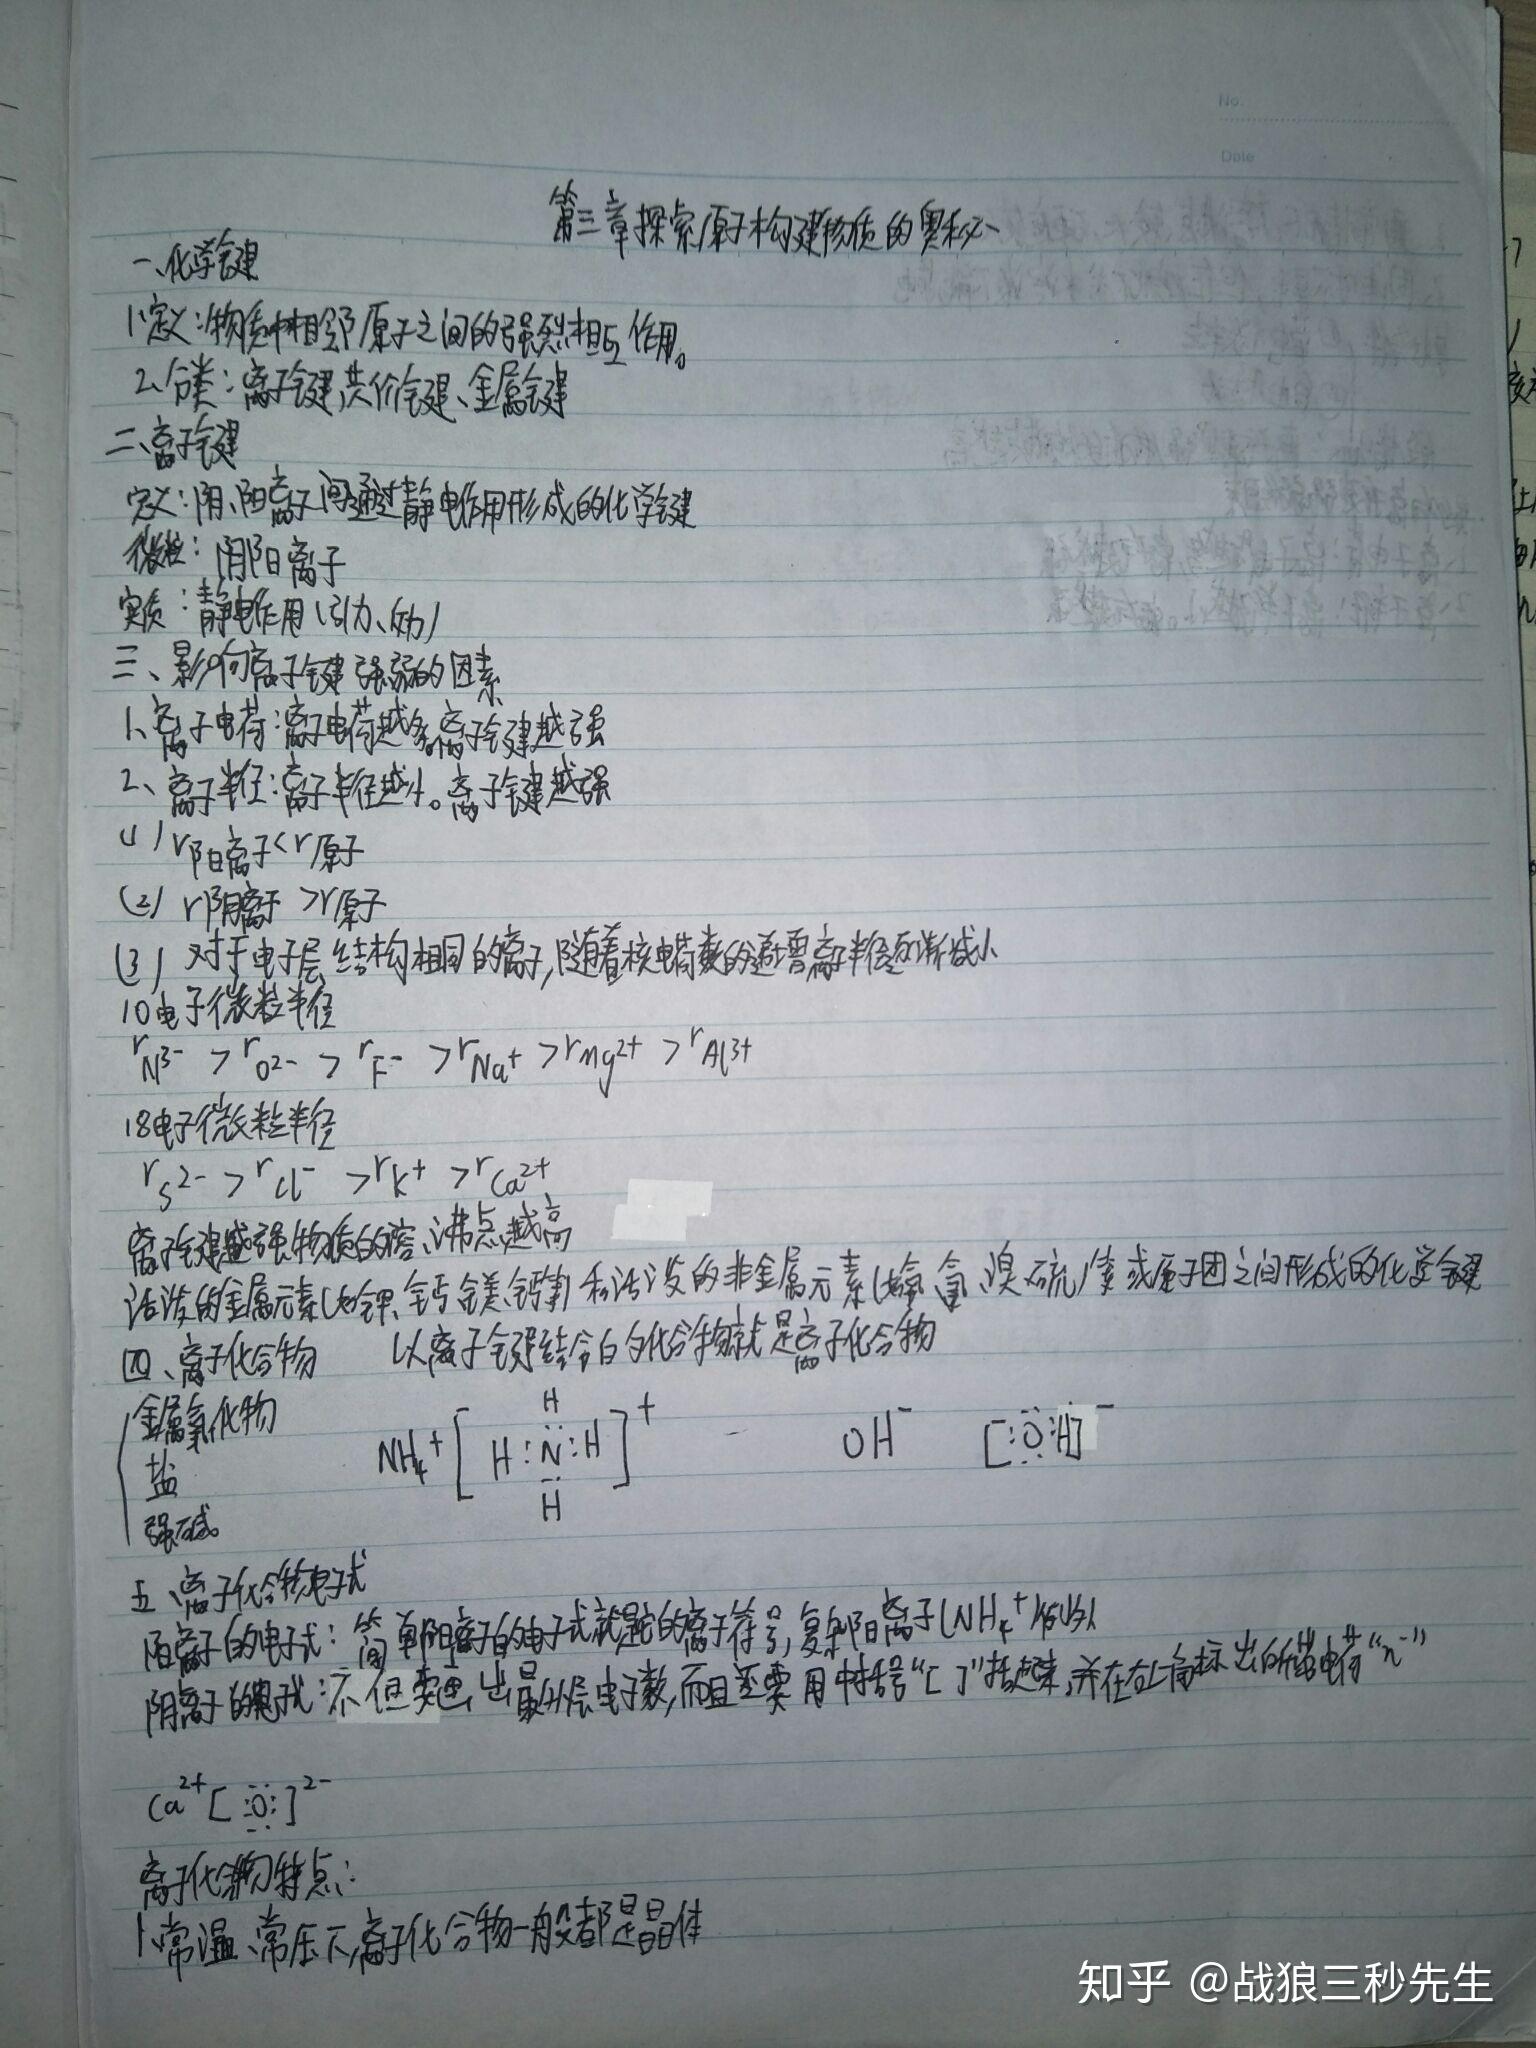 No.
Date
第三章探索原子构建物质的奥秘
一、化学键
1、定义:物质中相邻原子之间的强烈相互作用。
2、分类:离子键、共价键、金属键
二、离子键
定义:阴、阳离子间通过静电作用形成的化学键
微粒:阴阳离子
实质:静电作用(引力、斥力)
三、影响离子键强弱的因素
1、离子电荷:离子电荷越多。离子键越强
2、离子半径:离子半径越小。离子键越强
(1) r阳离子<r原子
(2) r阴离子>r原子
(3) 对于电子层结构相同的离子,随着核电荷数的递增离子半径逐渐减小
10电子微粒半径
rN³⁻ > rO²⁻ > rF⁻ > rNa⁺ > rMg²⁺ > rAl³⁺
18电子微粒半径
rS²⁻ > rCl⁻ > rK⁺ > rCa²⁺
离子键越强物质的熔、沸点越高
活泼的金属元素(如钾、钙、镁、钙等)和活泼的非金属元素(如氧、氯、溴、硫)等或原子团之间形成的化学键
四、离子化合物 以离子键结合的化合物就是离子化合物
金属氧化物
盐
强碱。
NH₄⁺ [H:N:H]⁺ OH⁻ [:O:H]⁻
H
H
五、离子化合物电子式
阳离子的电子式:简单阳离子的电子式就是它的离子符号,复杂阳离子(NH₄⁺)例外
阴离子的电子式:不但要画出最外层电子数,而且还要用中括号“[ ]”括起来,并在右上角标出所带电荷“n⁻”
Ca²⁺[:O:]²⁻
离子化合物特点:
1、常温、常压下,离子化合物一般都是晶体
知乎 @战狼三秒先生